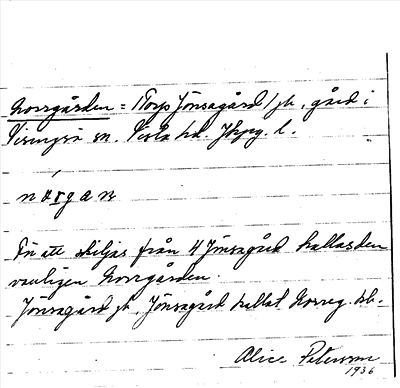 Norrgården = Torps Jönsagård 1/ jb, gård i
Visingsö sn. Vista hd. Jkpg. l.
nørgan
För att skiljas från 4 Jönsagård kallas den
vanligen Norrgården.
Jönsagård jb. Jönsagård kallat Norreg. kb.
Alice Peterson
1936